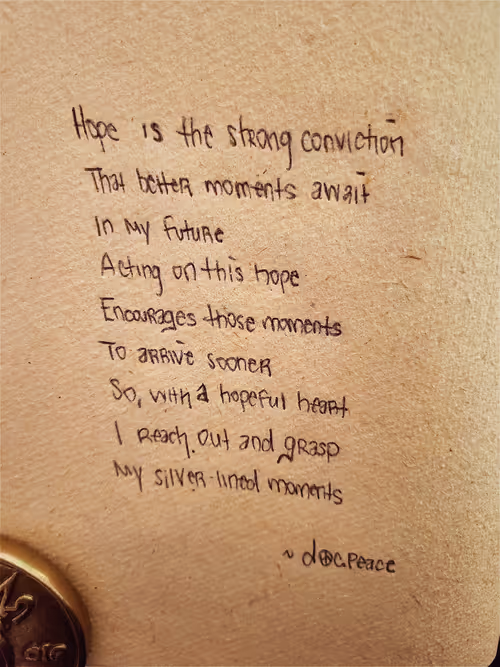 Hope is the strong conviction
That better moments await
In my future
Acting on this hope
Encourages those moments
To arrive sooner
So, with a hopeful heart
I reach out and grasp
My silver-lined moments
~ doc.peace